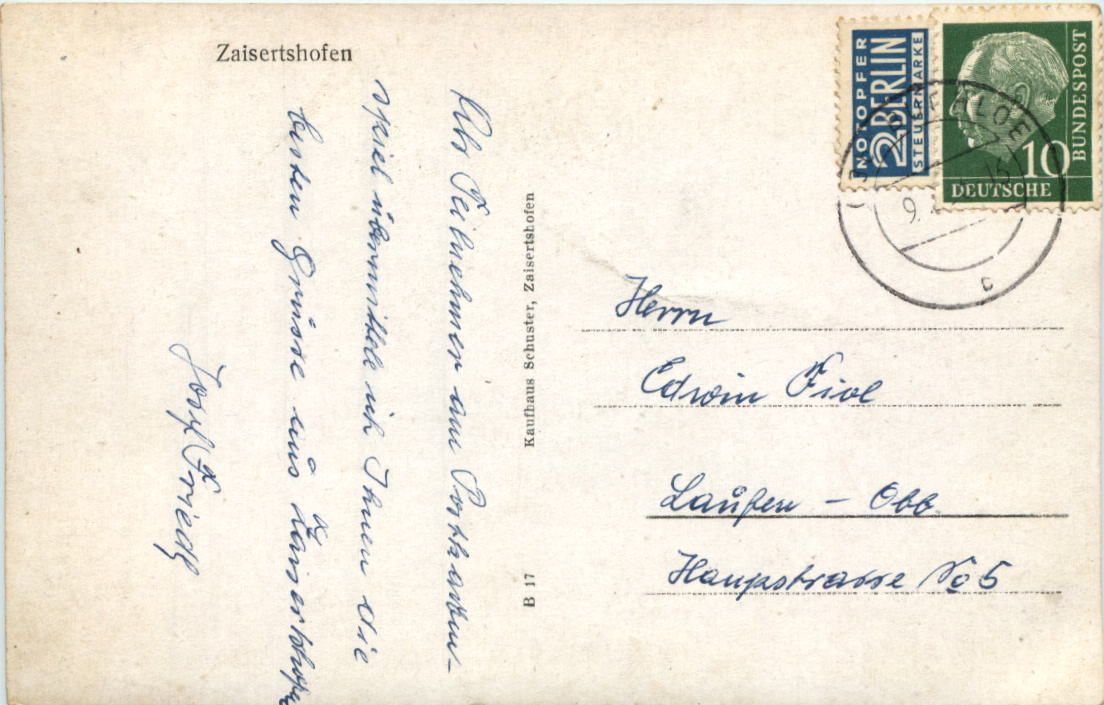 Zaisertshofen
Als Teilnehmer am Postkarten-
spiel übermittele ich Ihnen die
besten Grüsse aus Zaisertshofen
Josef Friedl
Kaufhaus Schuster, Zaisertshofen
B 17
NOTOPFER
2 BERLIN
STEUERMARKE
10
DEUTSCHE
BUNDESPOST
9.
c
Herrn
Edwin Fiol
Laufen - Obb
Haupstrasse No 5